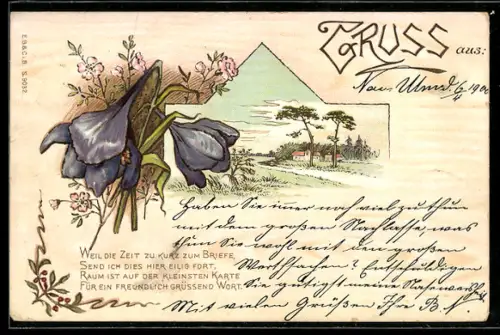 E.B.&C.i.B. S. 9032.
GRUSS aus:
Neu-Ulm d. 6/4 1900
Haben Sie immer noch viel zu thun
mit dem großen Nachlasse, was
thun Sie wohl mit den großen
Werthsachen? Entschuldigen
Sie gütigst meine
Mit vielen Grüßen Ihre B.
WEIL DIE ZEIT ZU KURZ ZUM BRIEFE,
SEND ICH DIES HIER EILIG FORT,
RAUM IST AUF DER KLEINSTEN KARTE
FÜR EIN FREUNDLICH GRÜSSEND WORT.